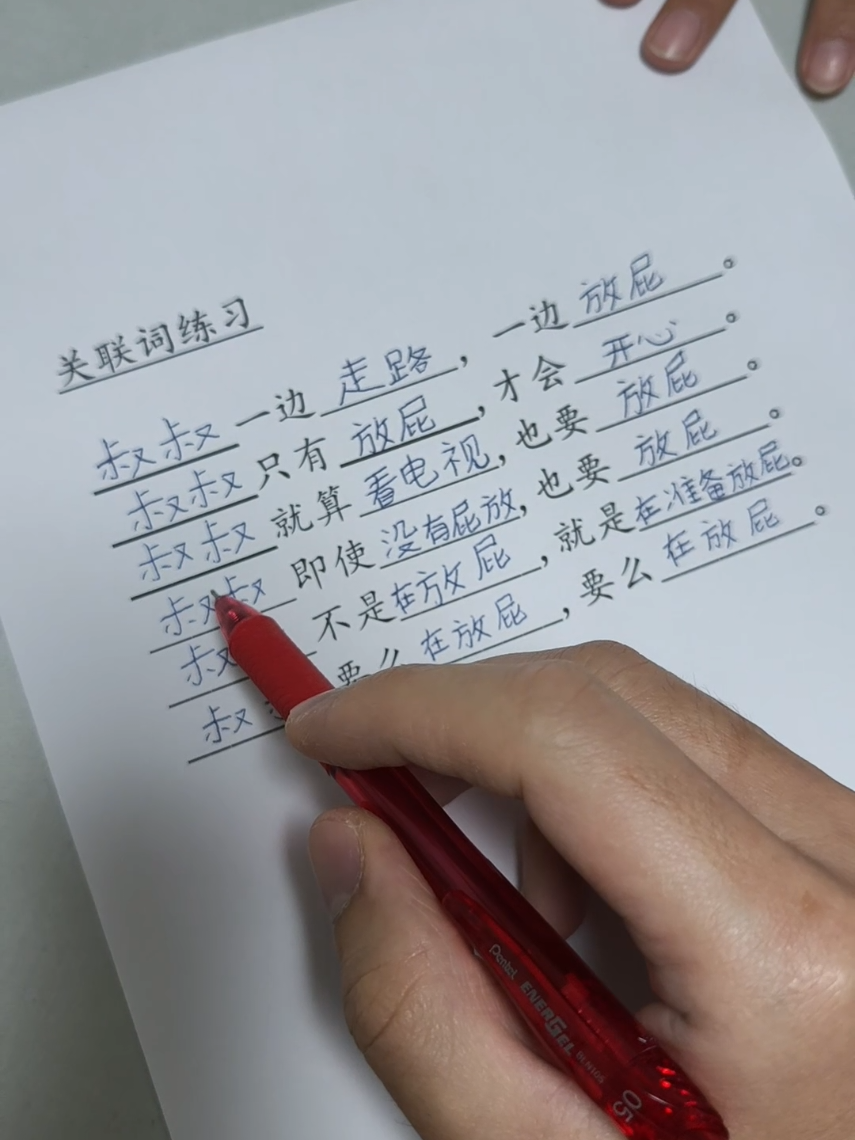 关联词练习
叔叔一边走路，一边放屁。
叔叔只有放屁，才会开心。
叔叔就算看电视，也要放屁。
叔叔即使没有屁放，也要放屁。
叔不是在放屁，就是在准备放屁。
叔要么在放屁，要么在放屁。
Pentel ENERGEL BLN105 05